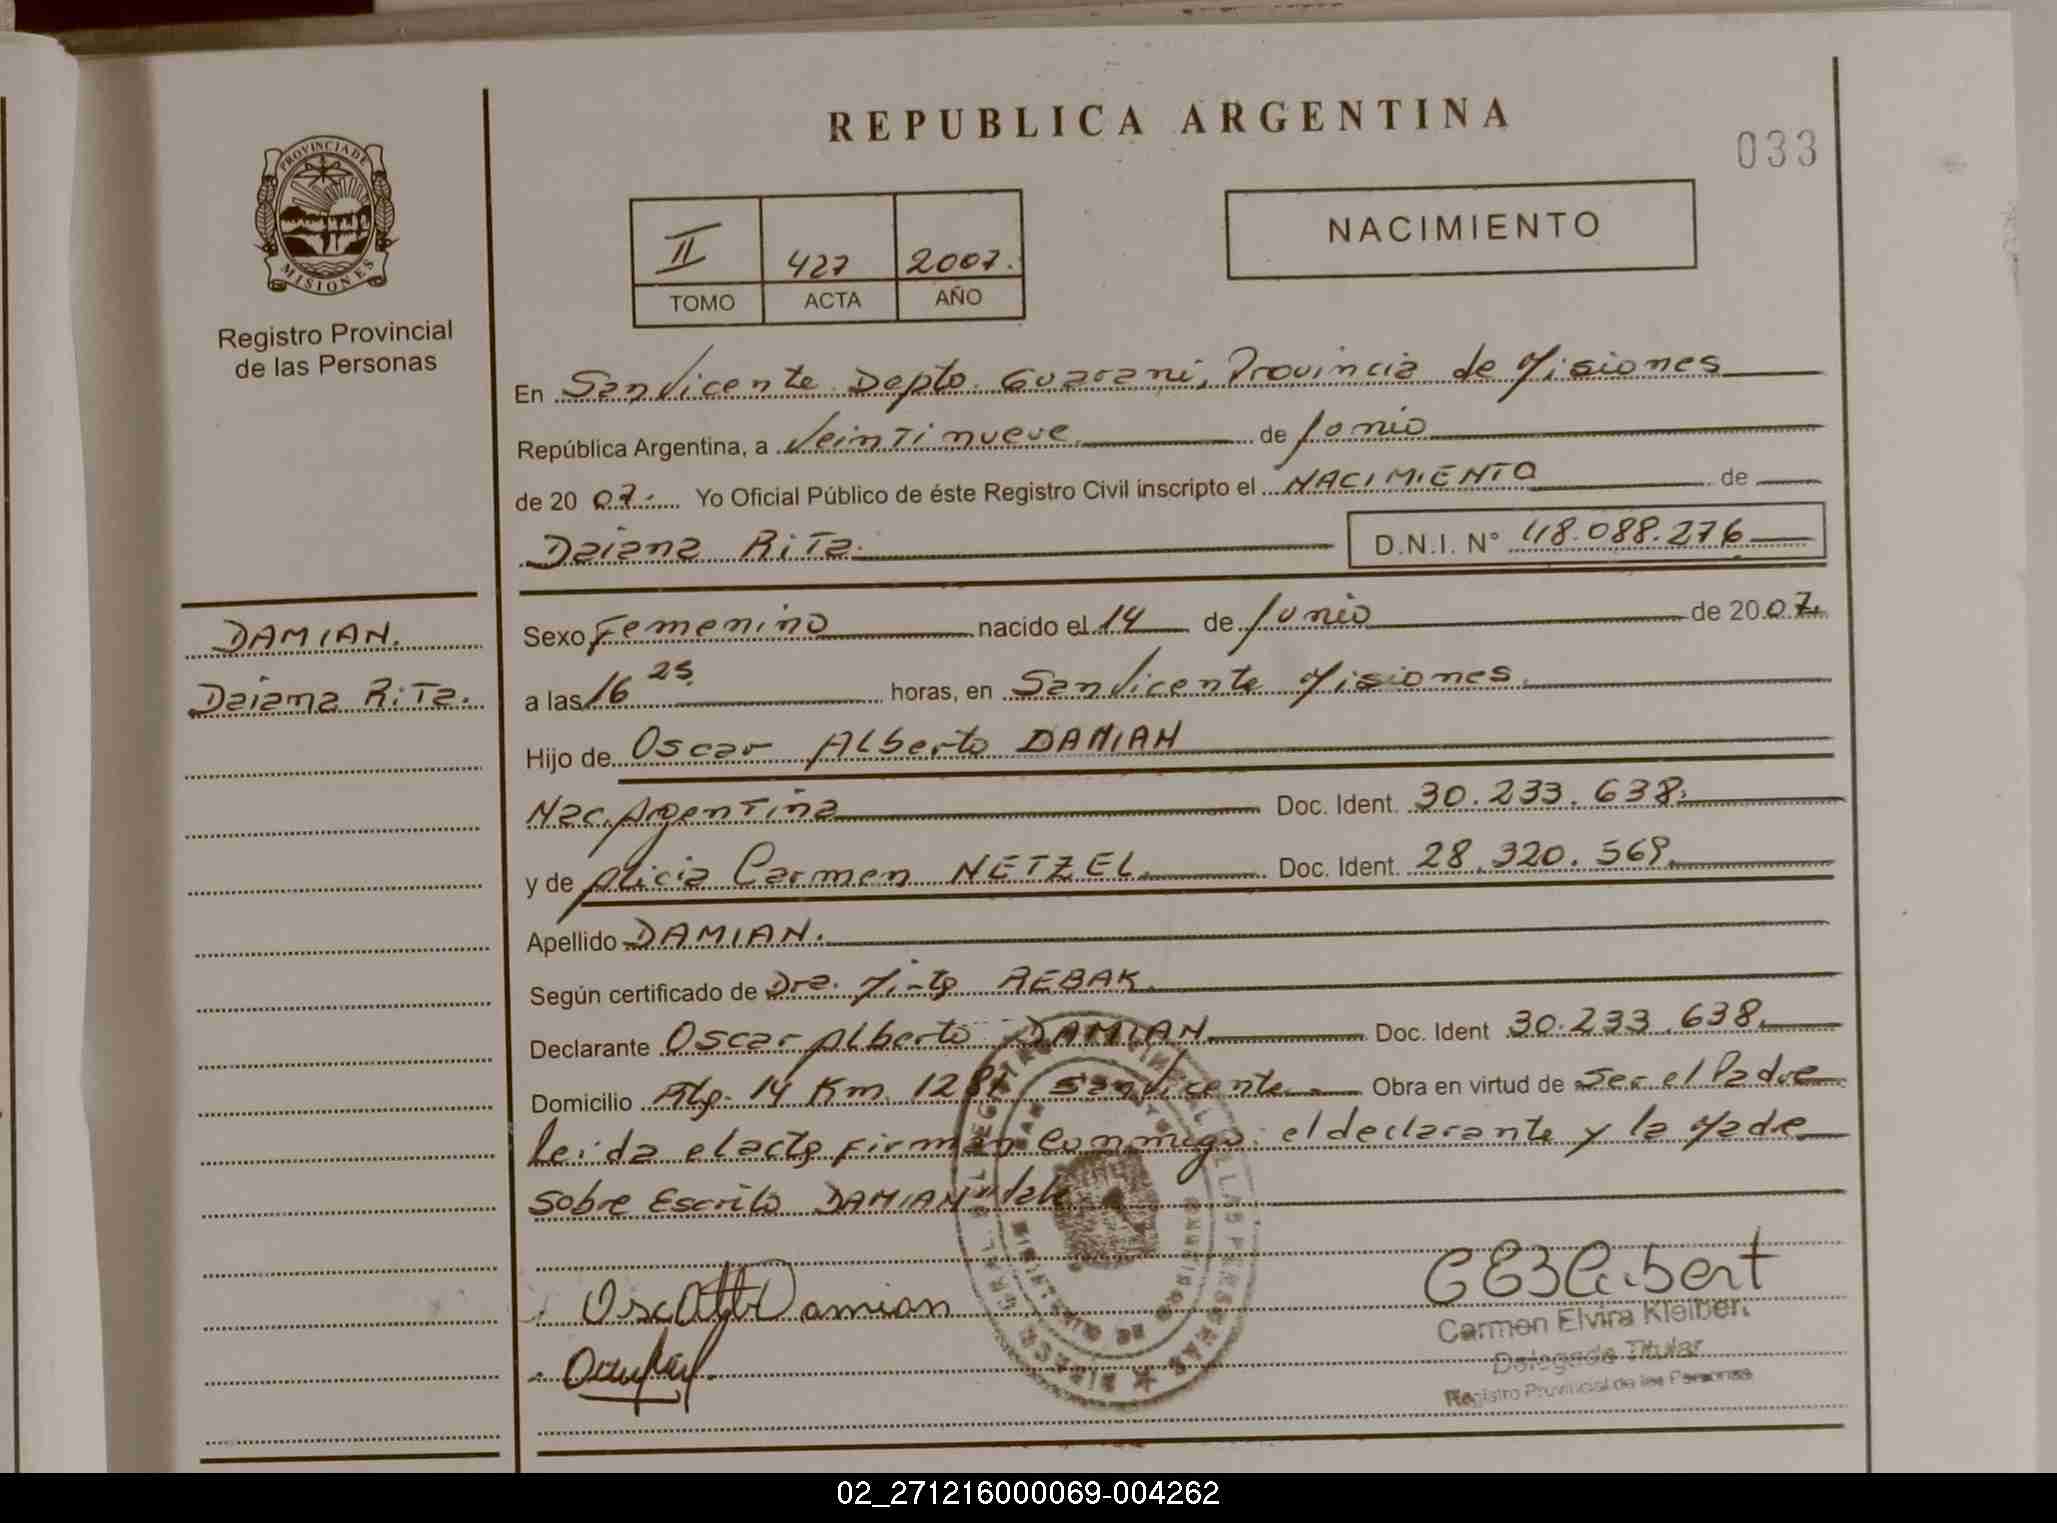 REPUBLICA ARGENTINA
033
PROVINCIA DE
MISIONES
Registro Provincial
de las Personas
II 427 2007.
TOMO ACTA AÑO
NACIMIENTO
En San Vicente Depto Guarani, Provincia de Misiones
República Argentina, a Veintinueve de Junio
de 20 07. Yo Oficial Público de éste Registro Civil inscripto el NACIMIENTO de
Daiana Rita. D.N.I. N° 48.088.276
DAMIAN.
Daiana Rita.
Sexo Femenino nacido el 14 de Junio de 20 07.
a las 16 25 horas, en San Vicente Misiones.
Hijo de Oscar Alberto DAMIAN
Nac. Argentina Doc. Ident. 30.233.638.
y de Alicia Carmen NETZEL. Doc. Ident. 28.320.569.
Apellido DAMIAN.
Según certificado de Dra. REBAK.
Declarante Oscar Alberto DAMIAN Doc. Ident 30.233.638.
Domicilio 14 Km. 1281 San Vicente. Obra en virtud de Ser el Padre
Leida el acta firman Conmigo: el declarante y la Madre
Sobre Escrito DAMIAN" Vale
Osc Damian
Carmen Elvira Kleibert
Delegada Titular
Registro Provincial de las Personas
02_271216000069-004262